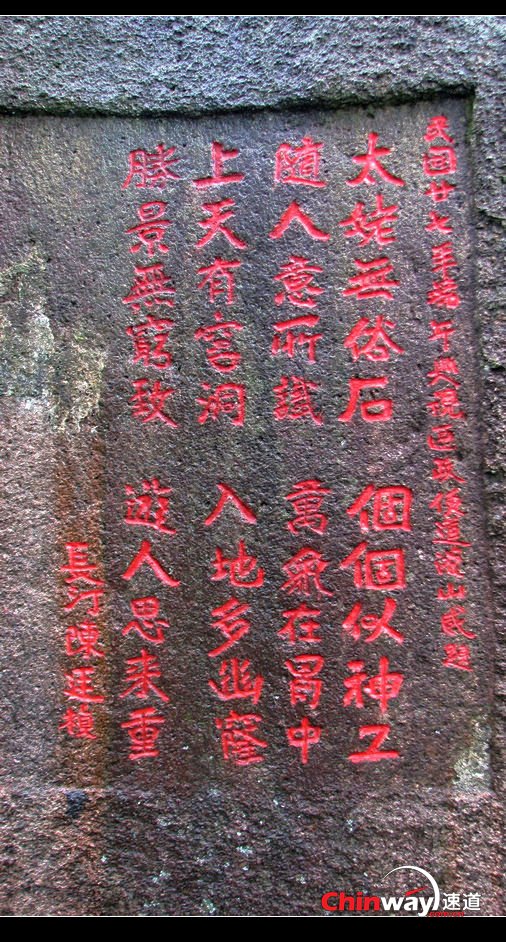 民國廿七年端午巡視區政後遊山感題
太姥無俗石 個個似神工
隨人意所識 萬象在胃中
上天有宮洞 入地多幽窿
勝景無窮致 遊人思來重
長汀陳廷楨
Chinway 速道